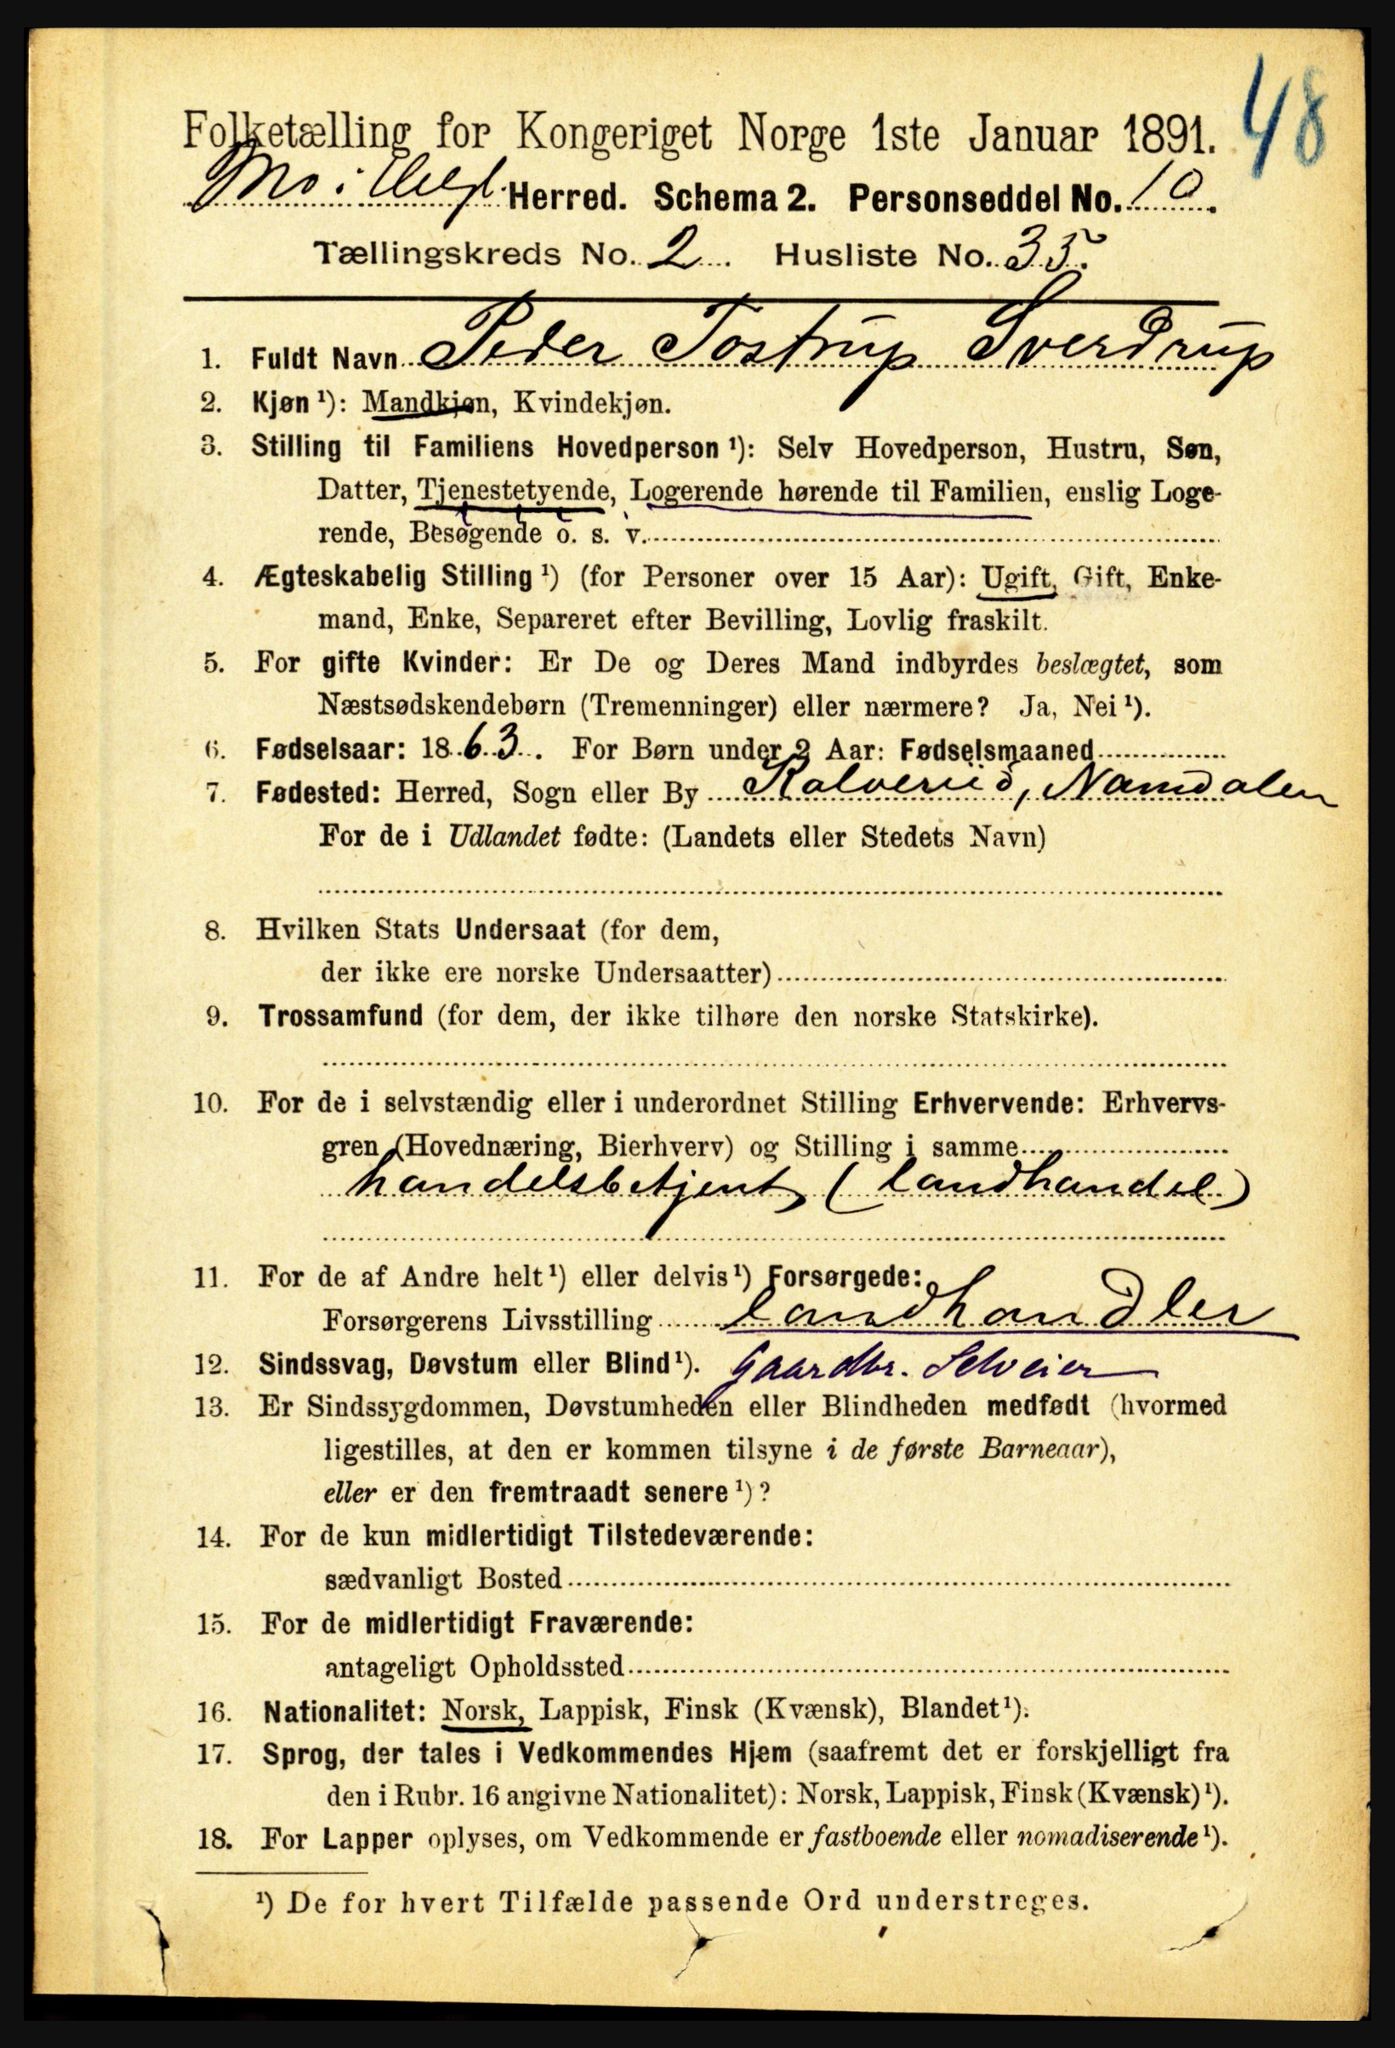 48
Folketælling for Kongeriget Norge 1ste Januar 1891.
Mo i Helgl. Herred. Schema 2. Personseddel No. 10.
Tællingskreds No. 2. Husliste No. 35.
1. Fuldt Navn Peder Tostrup Sverdrup
2. Kjøn ¹): Mandkjøn, Kvindekjøn.
3. Stilling til Familiens Hovedperson ¹): Selv Hovedperson, Hustru, Søn,
Datter, Tjenestetyende, Logerende hørende til Familien, enslig Loge-
rende, Besøgende o. s. v.
4. Ægteskabelig Stilling ¹) (for Personer over 15 Aar): Ugift, Gift, Enke-
mand, Enke, Separeret efter Bevilling, Lovlig fraskilt.
5. For gifte Kvinder: Er De og Deres Mand indbyrdes beslægtet, som
Næstsødskendebørn (Tremenninger) eller nærmere? Ja, Nei ¹).
6. Fødselsaar: 1863. For Børn under 2 Aar: Fødselsmaaned
7. Fødested: Herred, Sogn eller By Kolvereid, Namdalen
For de i Udlandet fødte: (Landets eller Stedets Navn)
8. Hvilken Stats Undersaat (for dem,
der ikke ere norske Undersaatter)
9. Trossamfund (for dem, der ikke tilhøre den norske Statskirke).
10. For de i selvstændig eller i underordnet Stilling Erhvervende: Erhvervs-
gren (Hovednæring, Bierhverv) og Stilling i samme
handelsbetjent (landhandel)
11. For de af Andre helt ¹) eller delvis ¹) Forsørgede:
Forsørgerens Livsstilling landhandler
12. Sindssvag, Døvstum eller Blind ¹). Gaardbr. Selveier
13. Er Sindssygdommen, Døvstumheden eller Blindheden medfødt (hvormed
ligestilles, at den er kommen tilsyne i de første Barneaar),
eller er den fremtraadt senere ¹)?
14. For de kun midlertidigt Tilstedeværende:
sædvanligt Bosted
15. For de midlertidigt Fraværende:
antageligt Opholdssted
16. Nationalitet: Norsk, Lappisk, Finsk (Kvænsk), Blandet ¹).
17. Sprog, der tales i Vedkommendes Hjem (saafremt det er forskjelligt fra
den i Rubr. 16 angivne Nationalitet): Norsk, Lappisk, Finsk (Kvænsk) ¹).
18. For Lapper oplyses, om Vedkommende er fastboende eller nomadiserende ¹).
¹) De for hvert Tilfælde passende Ord understreges.